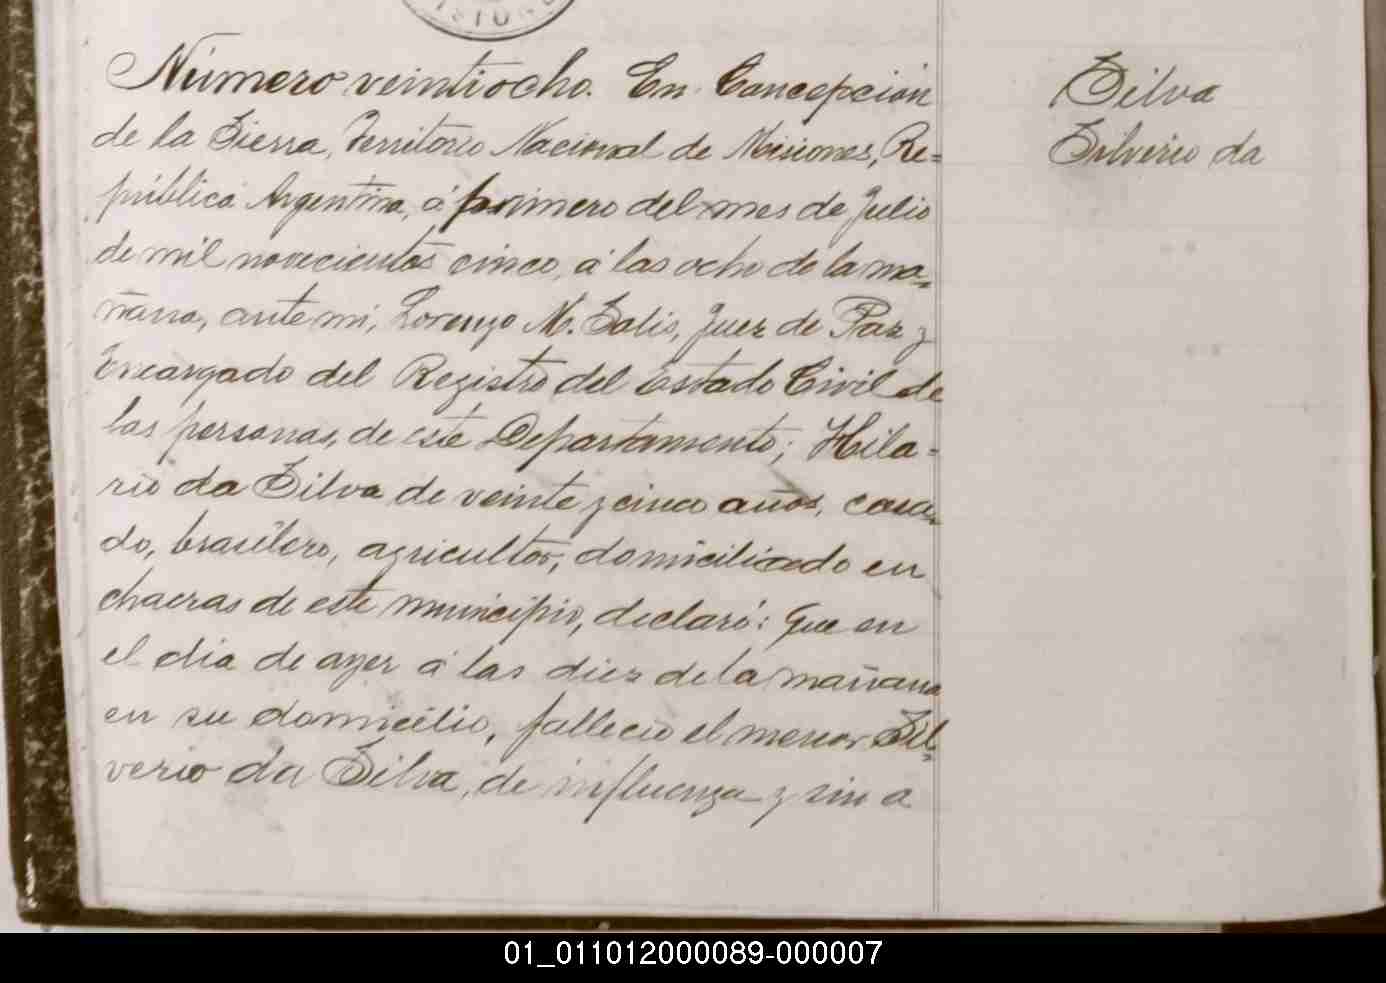 Número veintiocho. En Concepción
de la Sierra, Territorio Nacional de Misiones, Re=
pública Argentina, á primero del mes de Julio
de mil novecientos cinco, á las ocho de la ma=
ñana, ante mí, Lorenzo M. Solis, Juez de Paz y
Encargado del Registro del Estado Civil de
las personas, de este Departamento; Hila=
rio da Silva de veinte y cinco años, casa=
do, brasilero, agricultor, domiciliado en
chacras de este municipio, declaró: Que en
el dia de ayer á las diez de la mañana
en su domicilio, falleció el menor Sil=
verio da Silva, de influenza y sin a
Silva
Silverio da
01_011012000089-000007